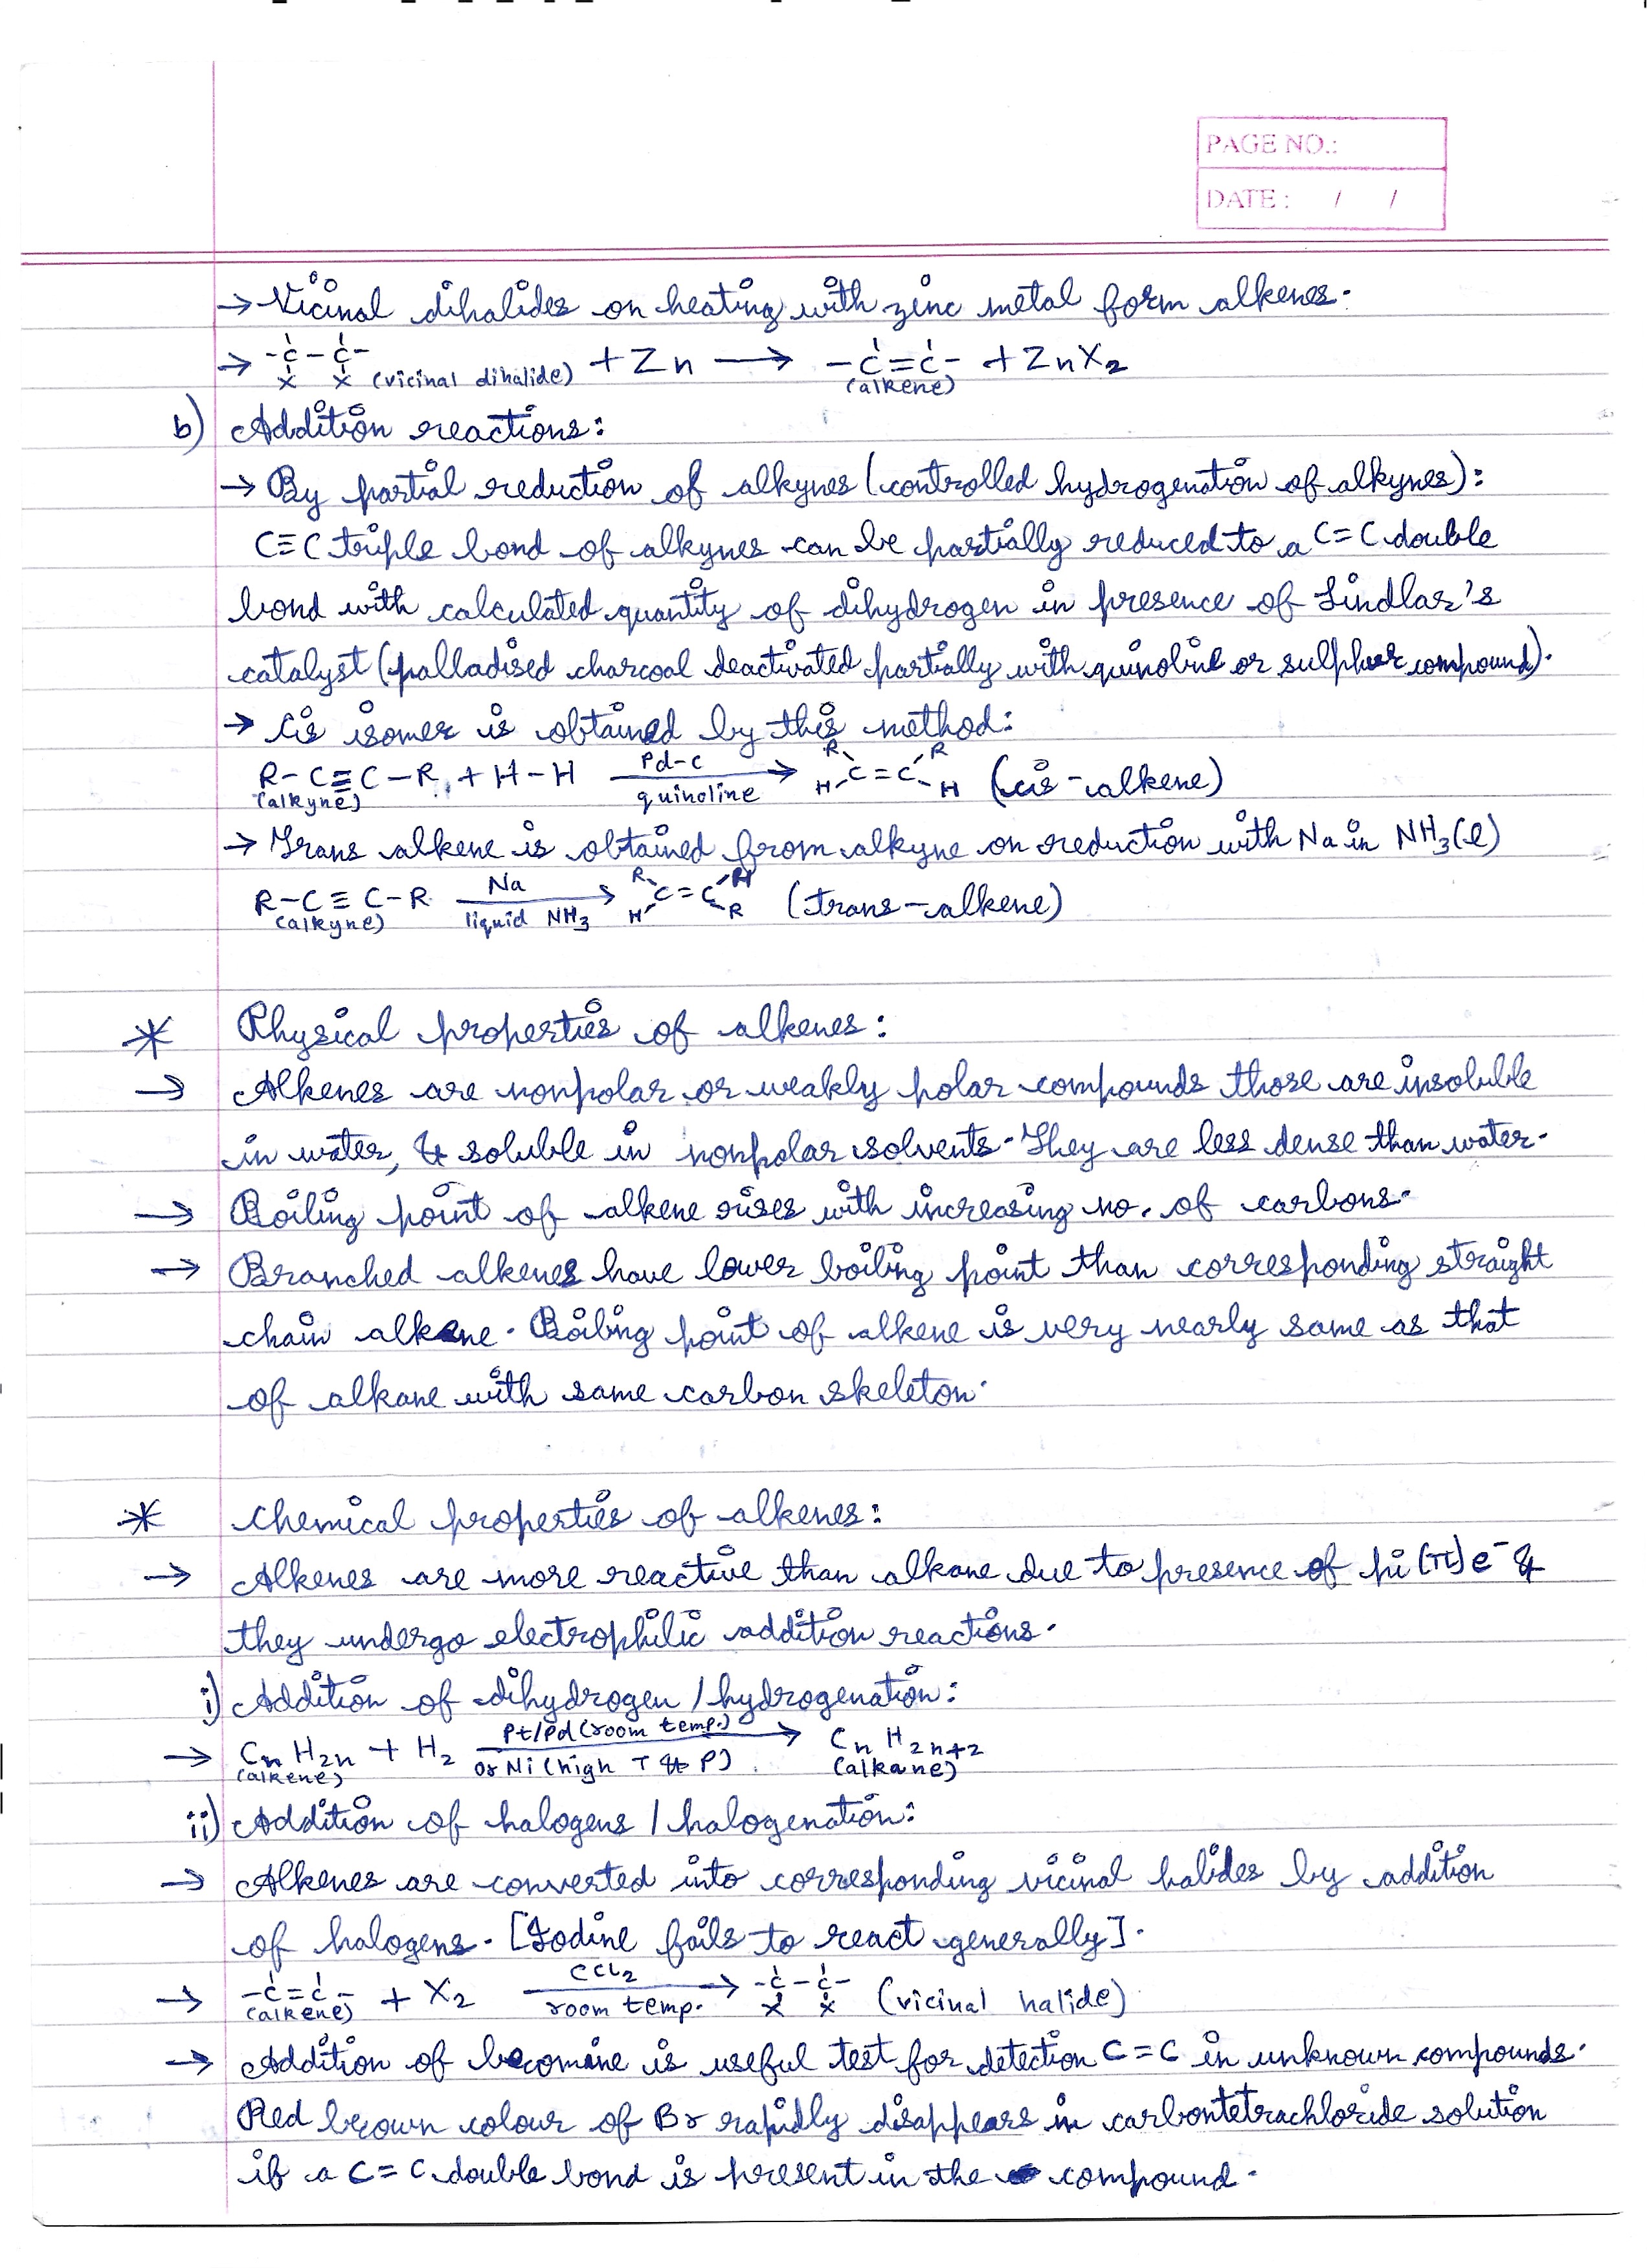 PAGE NO.:
DATE: / /
→ Vicinal dihalides on heating with zinc metal form alkenes.
→ -C-C- + Zn ⟶ -C=C- + ZnX₂
X X (vicinal dihalide) (alkene)
b) Addition reactions:
→ By partial reduction of alkynes (controlled hydrogenation of alkynes):
C≡C triple bond of alkynes can be partially reduced to a C=C double
bond with calculated quantity of dihydrogen in presence of Lindlar's
catalyst (palladised charcoal deactivated partially with quinoline or sulphur compound).
→ Cis isomer is obtained by this method:
R-C≡C-R + H-H Pd-C → R H C=C R H (cis-alkene)
(alkyne) quinoline
→ Trans alkene is obtained from alkyne on reduction with Na in NH₃(l)
R-C≡C-R Na → R H C=C H R (trans-alkene)
(alkyne) liquid NH₃
* Physical properties of alkenes:
→ Alkenes are nonpolar or weakly polar compounds those are insoluble
in water, & soluble in nonpolar solvents. They are less dense than water.
→ Boiling point of alkene rises with increasing no. of carbons.
→ Branched alkenes have lower boiling point than corresponding straight
chain alkene. Boiling point of alkene is very nearly same as that
of alkane with same carbon skeleton.
* Chemical properties of alkenes:
→ Alkenes are more reactive than alkane due to presence of pi (π) e⁻ &
they undergo electrophilic addition reactions.
i) Addition of dihydrogen / hydrogenation:
→ CnH2n + H₂ Pt/Pd (room temp.) → CnH2n+2
(alkene) or Ni (high T & P) (alkane)
ii) Addition of halogens / halogenation:
→ Alkenes are converted into corresponding vicinal halides by addition
of halogens. [Iodine fails to react generally].
→ -C=C- + X₂ CCl₂ → -C-C- (vicinal halide)
(alkene) room temp. X X
→ Addition of bromine is useful test for detection C=C in unknown compounds.
Red brown colour of Br rapidly disappears in carbontetrachloride solution
if a C=C double bond is present in the compound.